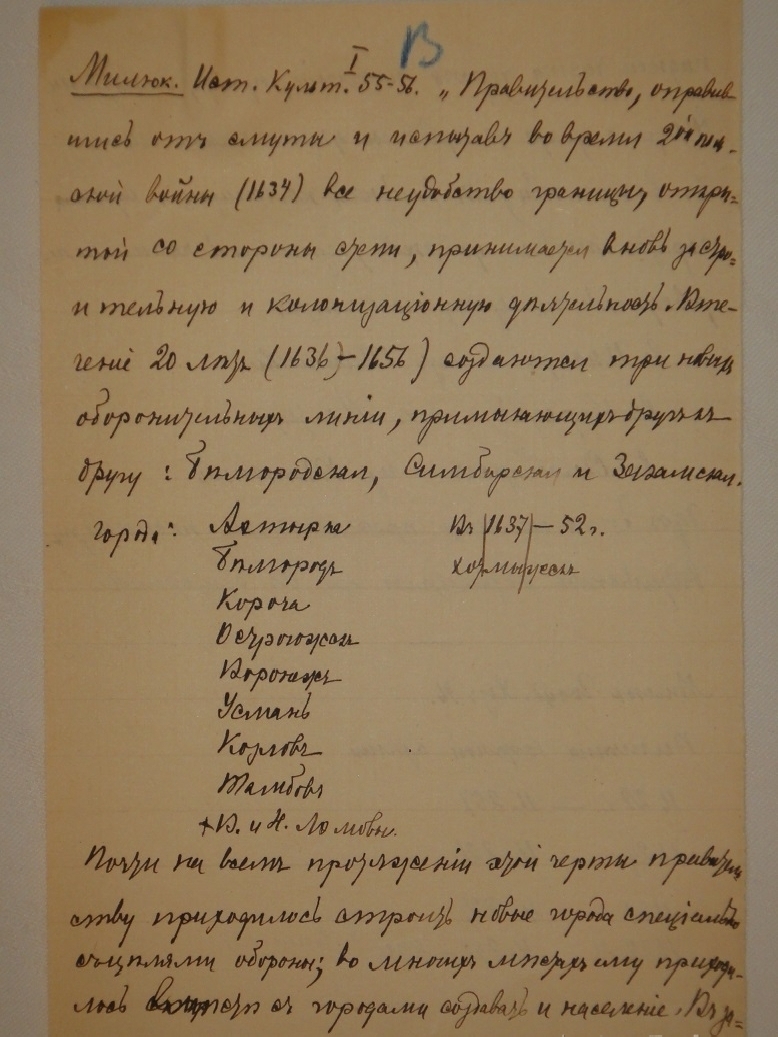 В
Милюк. Ист. Культ. I 55-56. „Правительство, оправив-
шись отъ смуты и испытавъ во время 2ой поль-
ской войны (1634) все неудобство границы, откры=
той со стороны степи, принимается вновь за стро=
ительную и колонизаціонную дѣятельность. В те-
ченіе 20 лѣтъ (1636 – 1656) создаются три новыхъ
оборонительныхъ линіи, примыкающихъ другъ къ
другу: Бѣлгородская, Симбирская и Закамская.
города: Ахтырка Въ 1637 – 52 г.
Бѣлгородъ Хотмыжскъ
Короча
Острогожскъ
Воронежъ
Усмань
Козловъ
Тамбовъ
+ В. и Н. Ломовы.
Почти на всемъ протяженіи этой черты правитель
ству приходилось строить новые города спеціально
съ цѣлями обороны; во многихъ мѣстахъ ему приходи-
лось вмѣстѣ съ городами создавать и населеніе. Въ за=